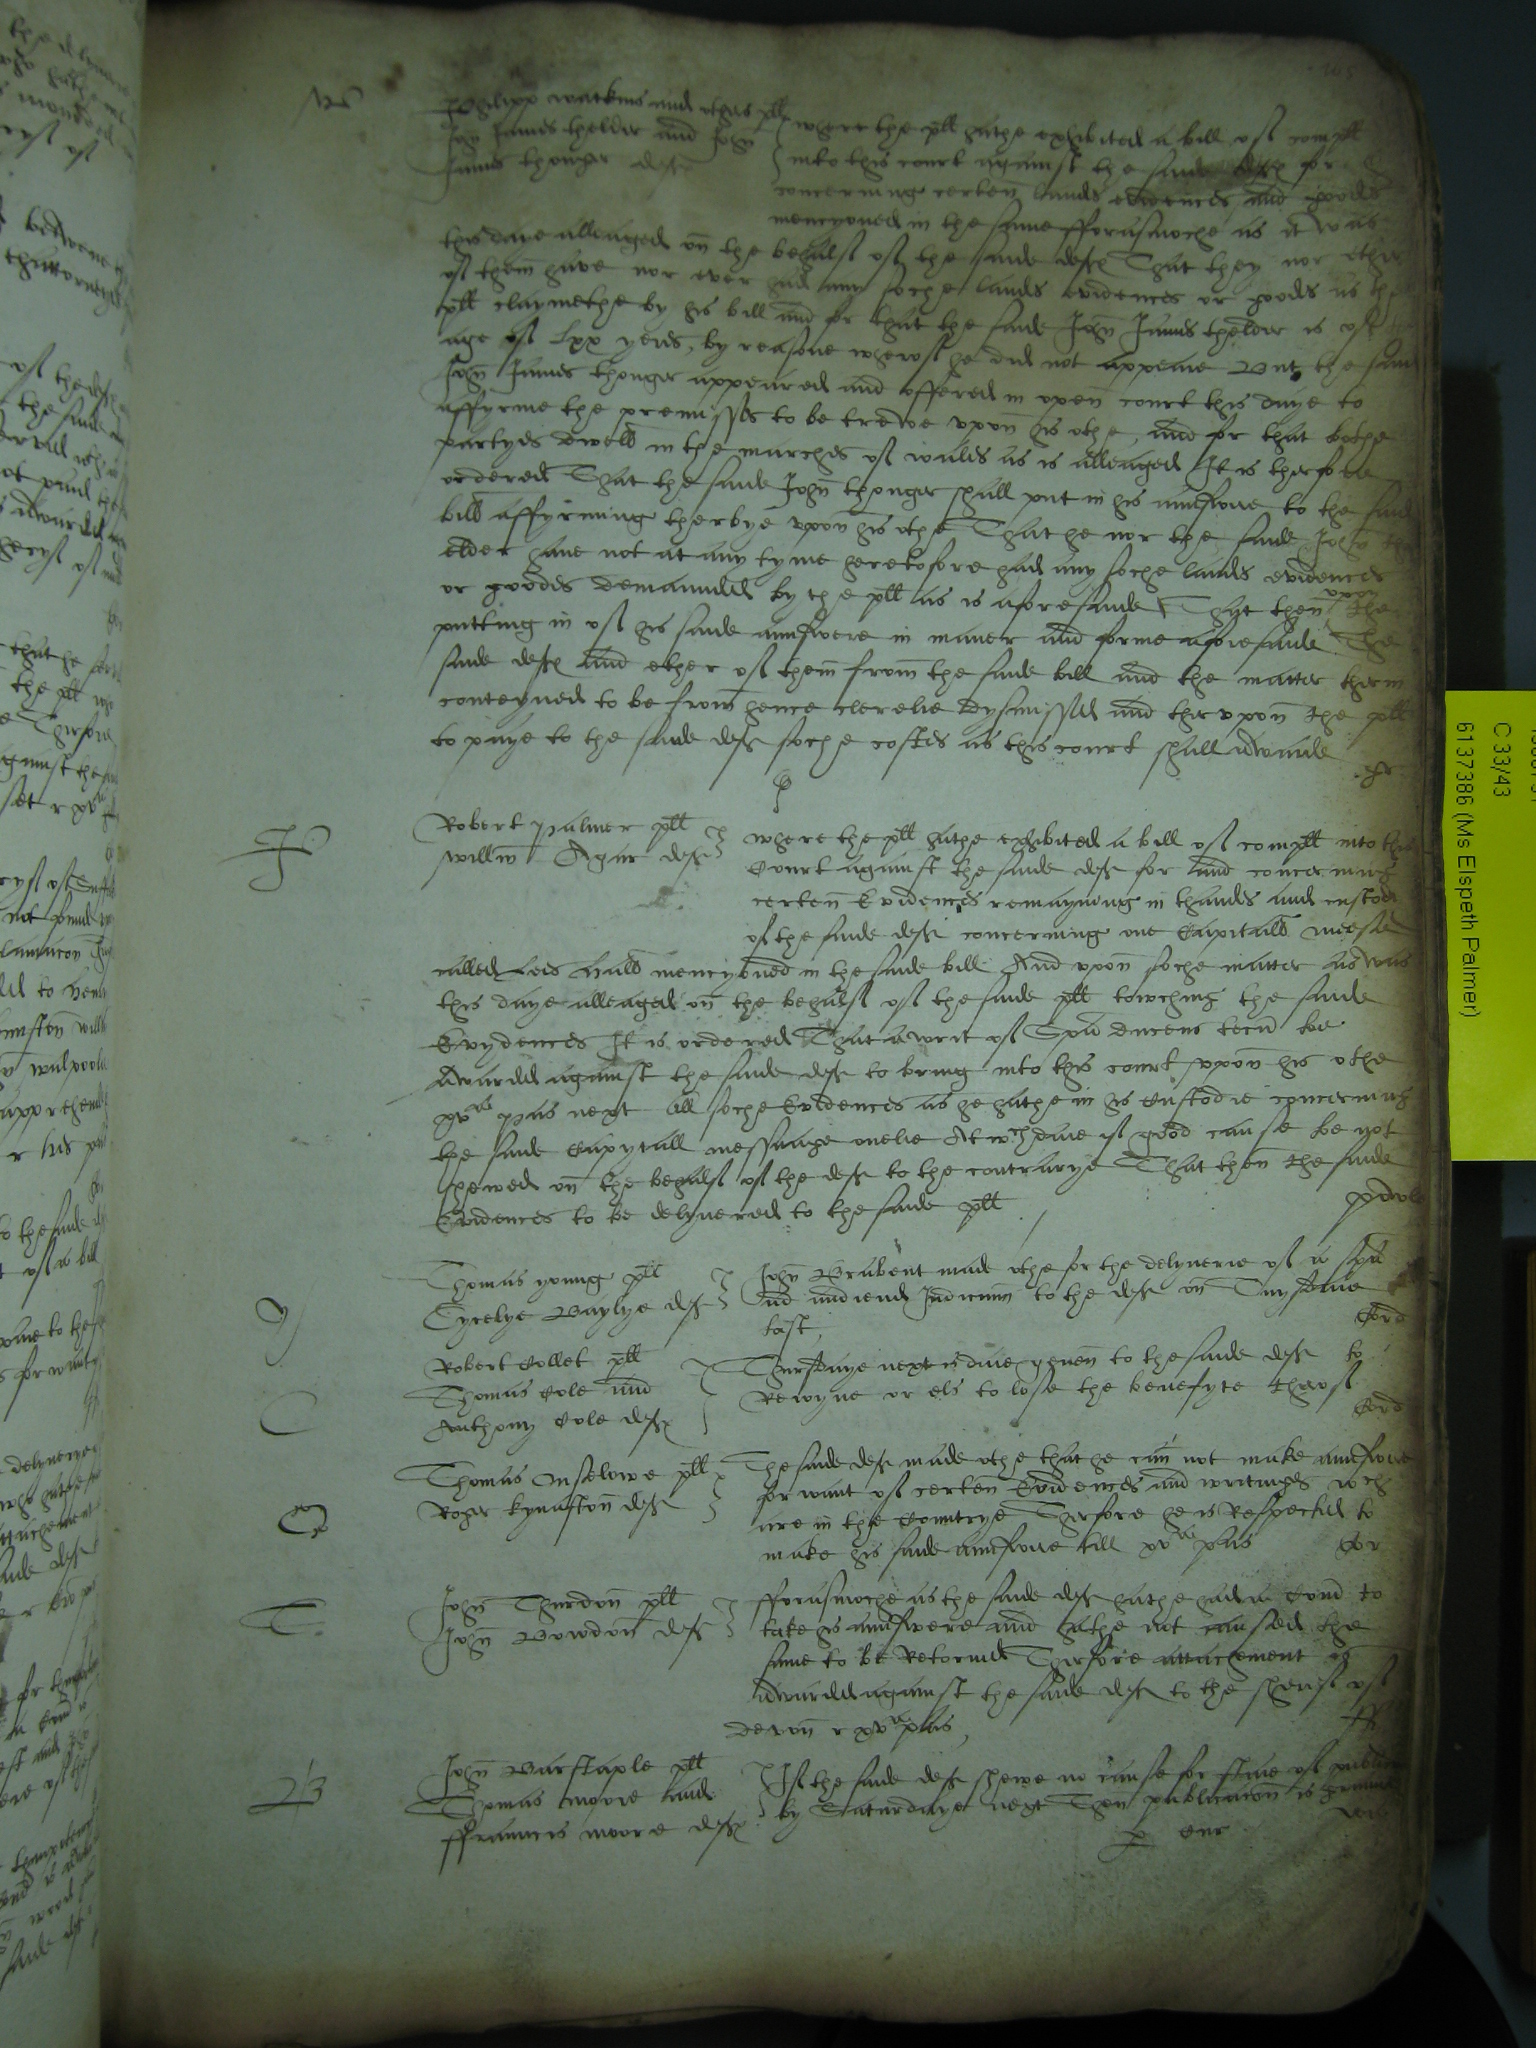 W
Philipp Watkins and others pltt
John James thelder and John
James thonger deftes
where the pltt hathe exhibited a bill of complt
into this court against the saide deftes for
concerning certen landes evidences and goodes
mencyoned in the same fforasmoche as it was
this daye alleaged on the behalf of the saide deftes That they nor ether
of them have nor ever had any soche landes evidences or goodes as the
pltt claymethe by his bill and for that the saide John James thelder is of the
age of lxx yeres, by reasone wherof he did not appeare But the said
John James thonger appeared and offered in open court this daye to
affyrme the premisses to be trewe upon his othe, and for that bothe
partyes dwell in the marches of wales as is alleaged It is therfore
ordered That the saide John thonger shall put in his aunswere to the said
bill affyrming therbye upon his othe That he nor the saide John the
elder have not at any tyme heretofore had any soche landes evidences
or goodes demaunded by the pltt as is aforesaide That then upon the
putting in of his saide aunswere in maner and forme aforesaide The
saide deftes and ether of them from the saide bill and the matter therin
conteyned to be from hence clerelie dysmissed and therupon the pltt
to paye to the saide deftes soche costes as this court shall awarde
P
Robert Palmer pltt
Willm Agar deft
where the pltt hathe exhibited a bill of complt into this
Court against the saide deft for and concerning
certen Evidences remayning in thandes and custodie
of the saide deft concerning one Capitall mease
called Lees Hall mencyoned in the saide bill And upon soche matter as was
this daye alleaged on the behalf of the saide pltt towching the saide
Evydences It is ordered That a writ of Spa ducens tecu be
Awarded against the saide deft to bring into this court upon his othe
xvna pas next all soche Evidences as he hathe in his Custodie concerning
the saide Capytall messuage onelie At wch daie if good cause be not
shewed on the behalf of the deft to the contrarye That then the saide
Evidences to be delyvered to the saide pltt
Powle
Y
Thomas Young pltt
Cycelye Baylye deft
John Brabent made othe for the delyverie of a spa
ad audiend Judicium to the deft on Tuysdaie
last,
Cord
C
Robert Collet pltt
Thomas Cole and
Anthony Cole deftes
Thursdaye next is daie geven to the saide deft to
Rejoyne or els to lose the benefyte therof
Cord
O
Thomas Onselowe pltt
Roger Kynaston deft
The saide deft made othe that he can not make aunswere
for want of certen Evidences and writinges wch
are in the Countrye Therfore he is Respected to
make his saide aunswere till xvna pas
Cor
T
John Thurdon pltt
John Bowdon deft
fforasmoche as the saide deft hathe had a Comd to
take his aunswere and hathe not caused the
same to be Retorned Therfore attachement is
awarded against the saide deft to the sherif of
devon r xvna pas,
B
John Barstaple pltt
Thomas moore and
ffrauncis moore deftes
If the saide deft shewe no cause for staie of publicacon
by Saturdaye next Then publicacon is graunted
p cur
C 33/43
6137386 (Ms Elspeth Palmer)